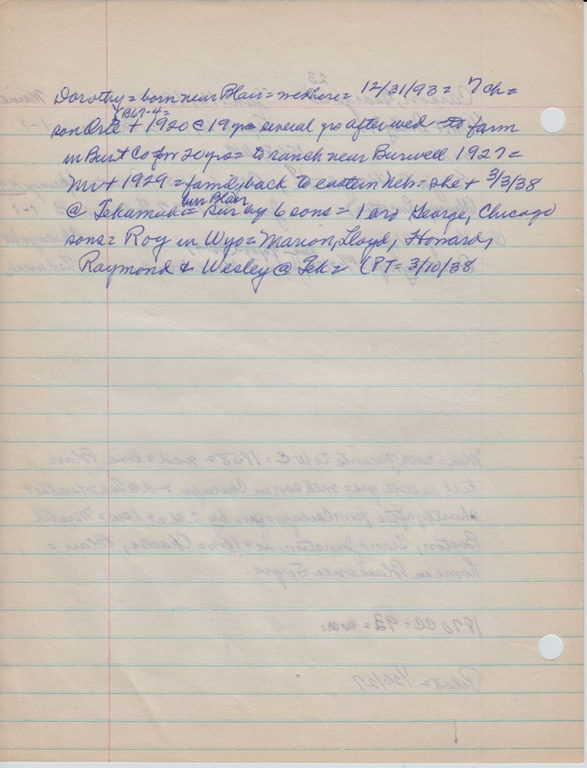 Dorothy = born near Blair = wed here = 12/31/93 = 7 ch =
1867-4 =
son Orle + 1920 @ 19 yrs = several yrs after wed to farm
in Burt Co for 20 yrs = to ranch near Burwell 1927 =
Mr + 1929 = family back to eastern Neb = she + 3/3/38
bur Blair
@ Tekamah = surv by 6 sons = 1 bro George, Chicago
sons = Roy in Wyo = Marion, Lloyd, Howard,
Raymond & Wesley @ Tek = (PT = 3/10/38